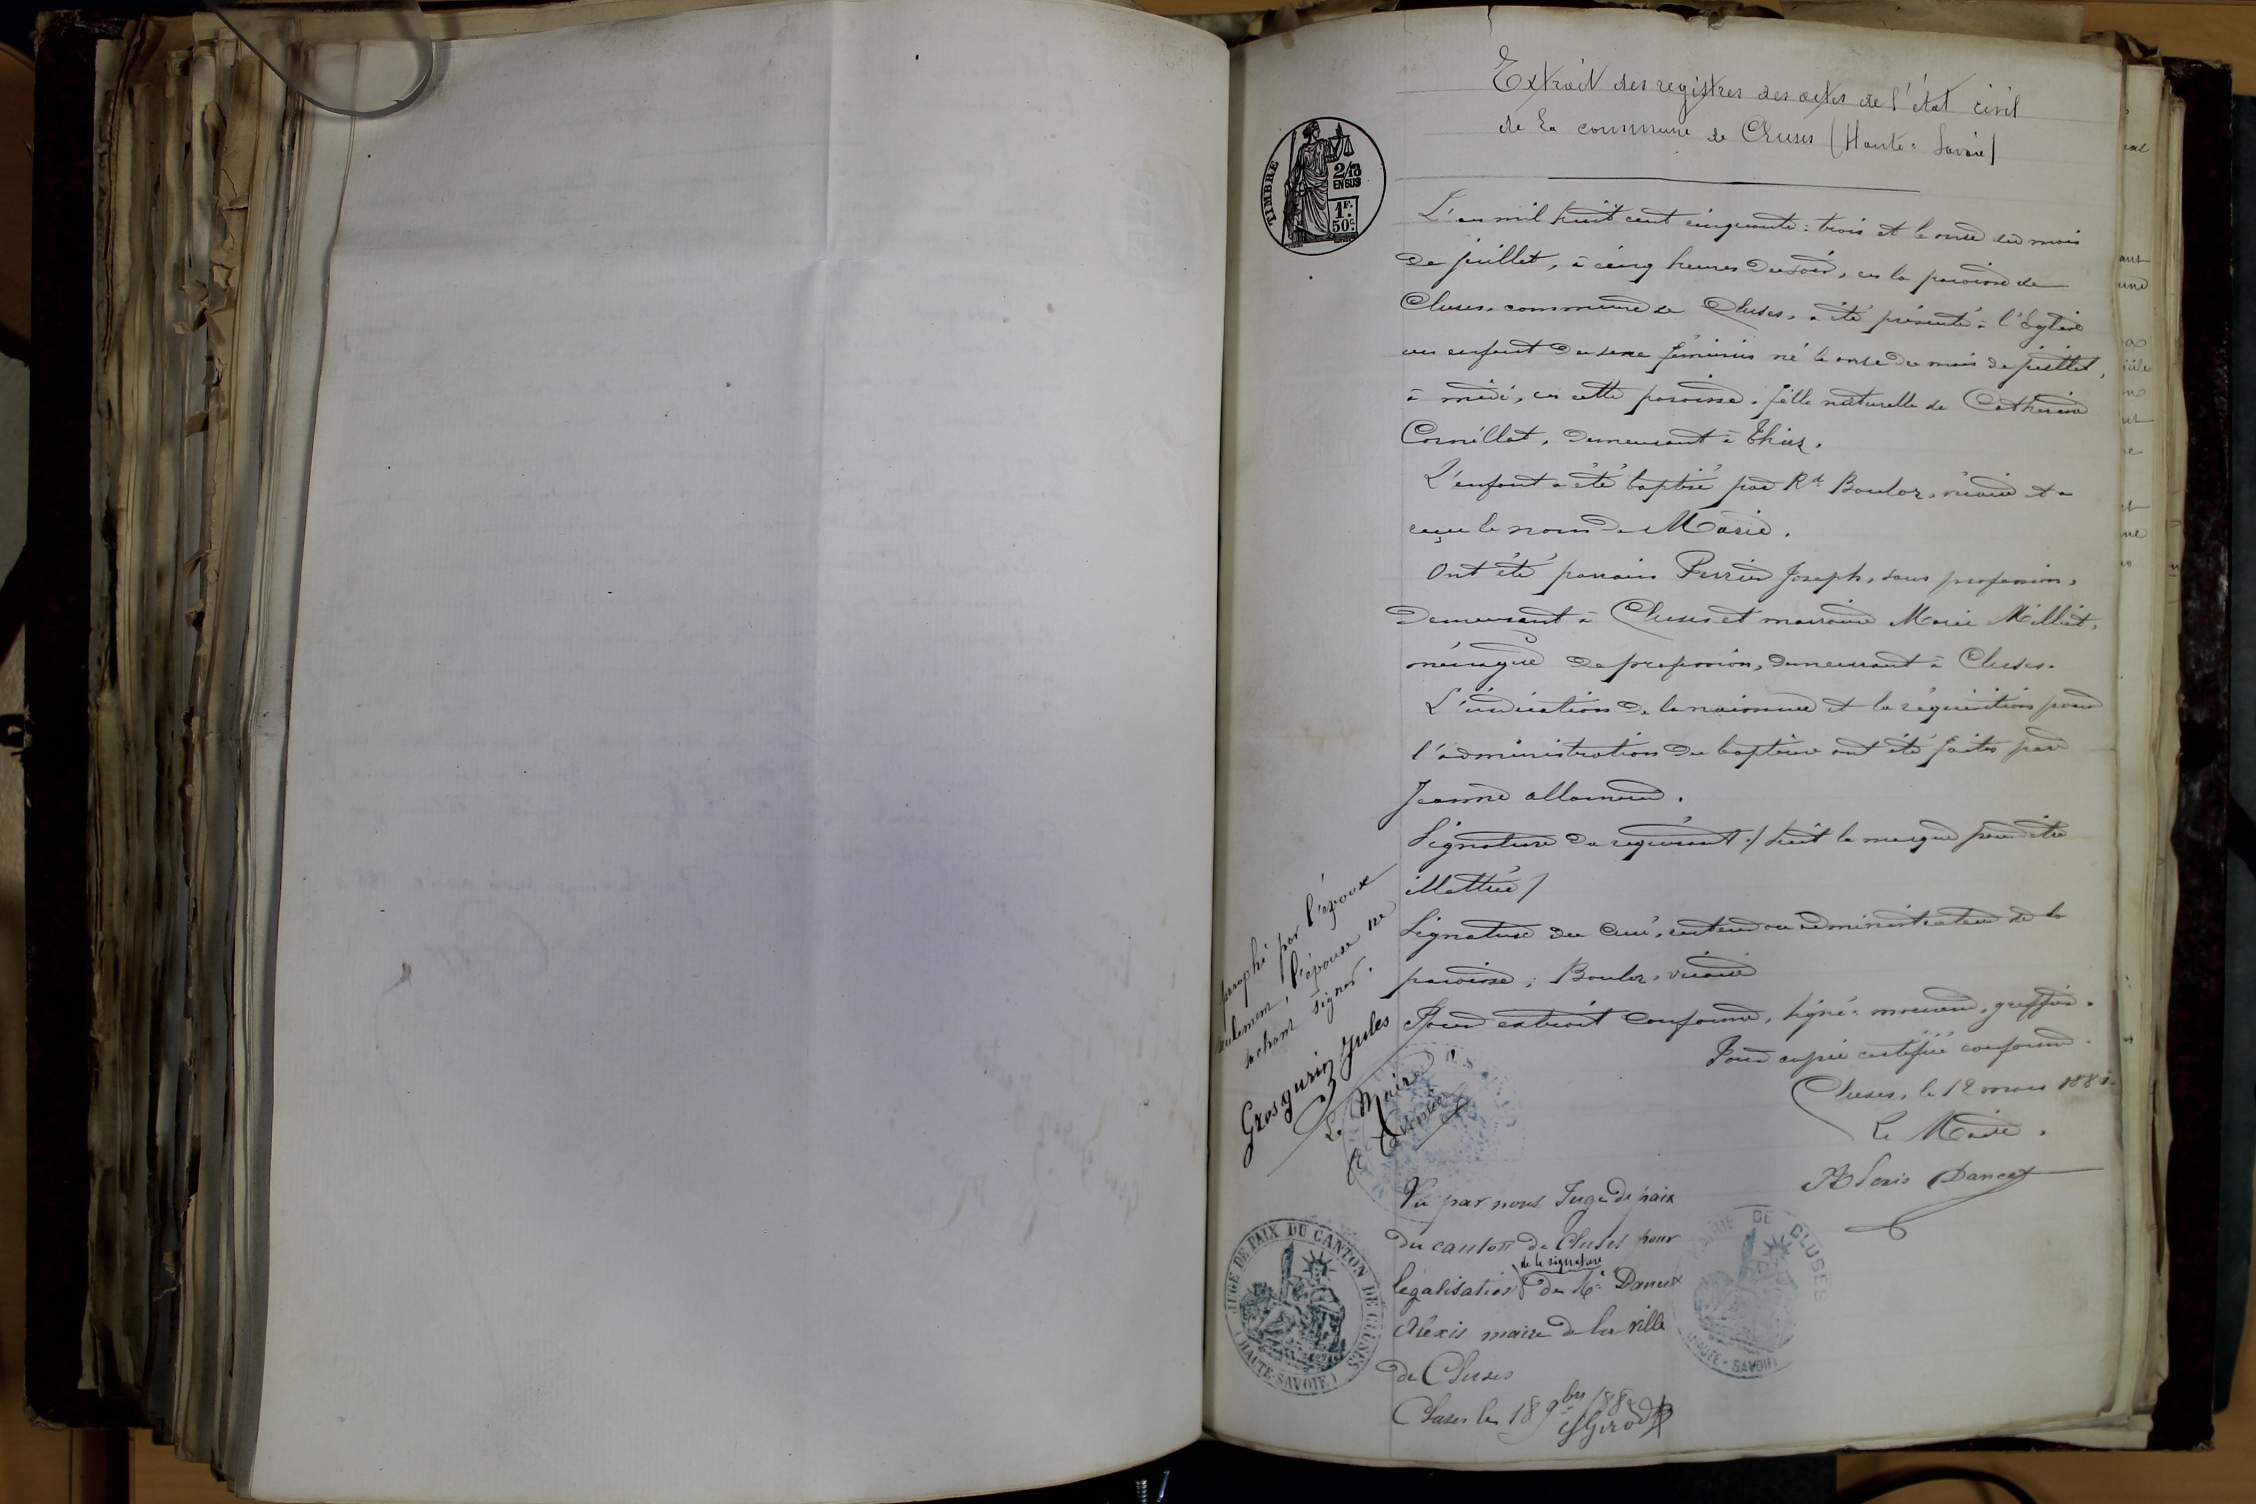 Extrait des registres des actes de l'état civil
de la commune de Cluses (Haute-Savoie)
TIMBRE
2/10
EN SUS
1F.
50c.
L'an mil huit cent cinquante-trois et le onze du mois
de juillet, à cinq heures du soir, en la paroisse de
Cluses, commune de Cluses, a été présenté à l'Eglise
un enfant du sexe féminin né le onze du mois de juillet,
à midi, en cette paroisse, fille naturelle de Catherine
Cornillat, demeurant à Thiez.
L'enfant a été baptisé par Rd Boulox, vicaire et a
reçu le nom de Marie.
Ont été parrain Perrier Joseph, sans profession,
demeurant à Cluses et marraine Marie Milliet,
ménagère de profession, demeurant à Cluses.
L'indication de la naissance et la réquisition pour
l'administration du baptême ont été faites par
Jeanne Allamand.
Signature du requérant :/ suit la marque pour être
illettré /
Signature du curé, recteur ou administrateur de la
paroisse ; Boulox, vicaire
Pour extrait conforme, signé : greffier.
Pour copie certifiée conforme.
Cluses, le 12 mars 188
Le Maire.
Alexis Dancet
MAIRIE DE CLUSES
HAUTE-SAVOIE
paraphé par l'époux
seulement, l'épouse ne
sachant signer.
Grosgurin Jules
Le Maire
Vu par nous Juge de paix
du canton de Cluses pour
légalisation de la signature de Mr Dancet
Alexis maire de la ville
de Cluses
Cluses le 18 9bre 188
Girod
JUGE DE PAIX DU CANTON DE CLUSES
(HAUTE-SAVOIE)